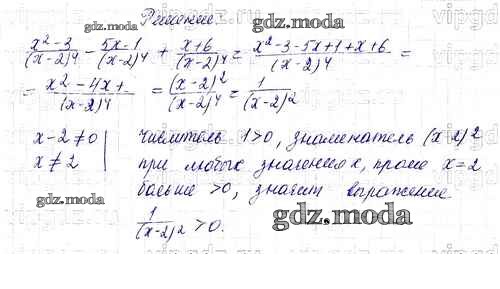 Решение.
gdz.moda
(x²-3)/(x-2)⁴ - (5x-1)/(x-2)⁴ + (x+6)/(x-2)⁴ = (x²-3-5x+1+x+6)/(x-2)⁴ =
gdz.moda
= (x²-4x+)/(x-2)⁴ = (x-2)²/(x-2)⁴ = 1/(x-2)²
x-2≠0 | числитель 1>0, знаменатель (x-2)²
x≠2 | при любых значениях x, кроме x=2
больше >0, значит выражение
1/(x-2)² >0.
gdz.moda